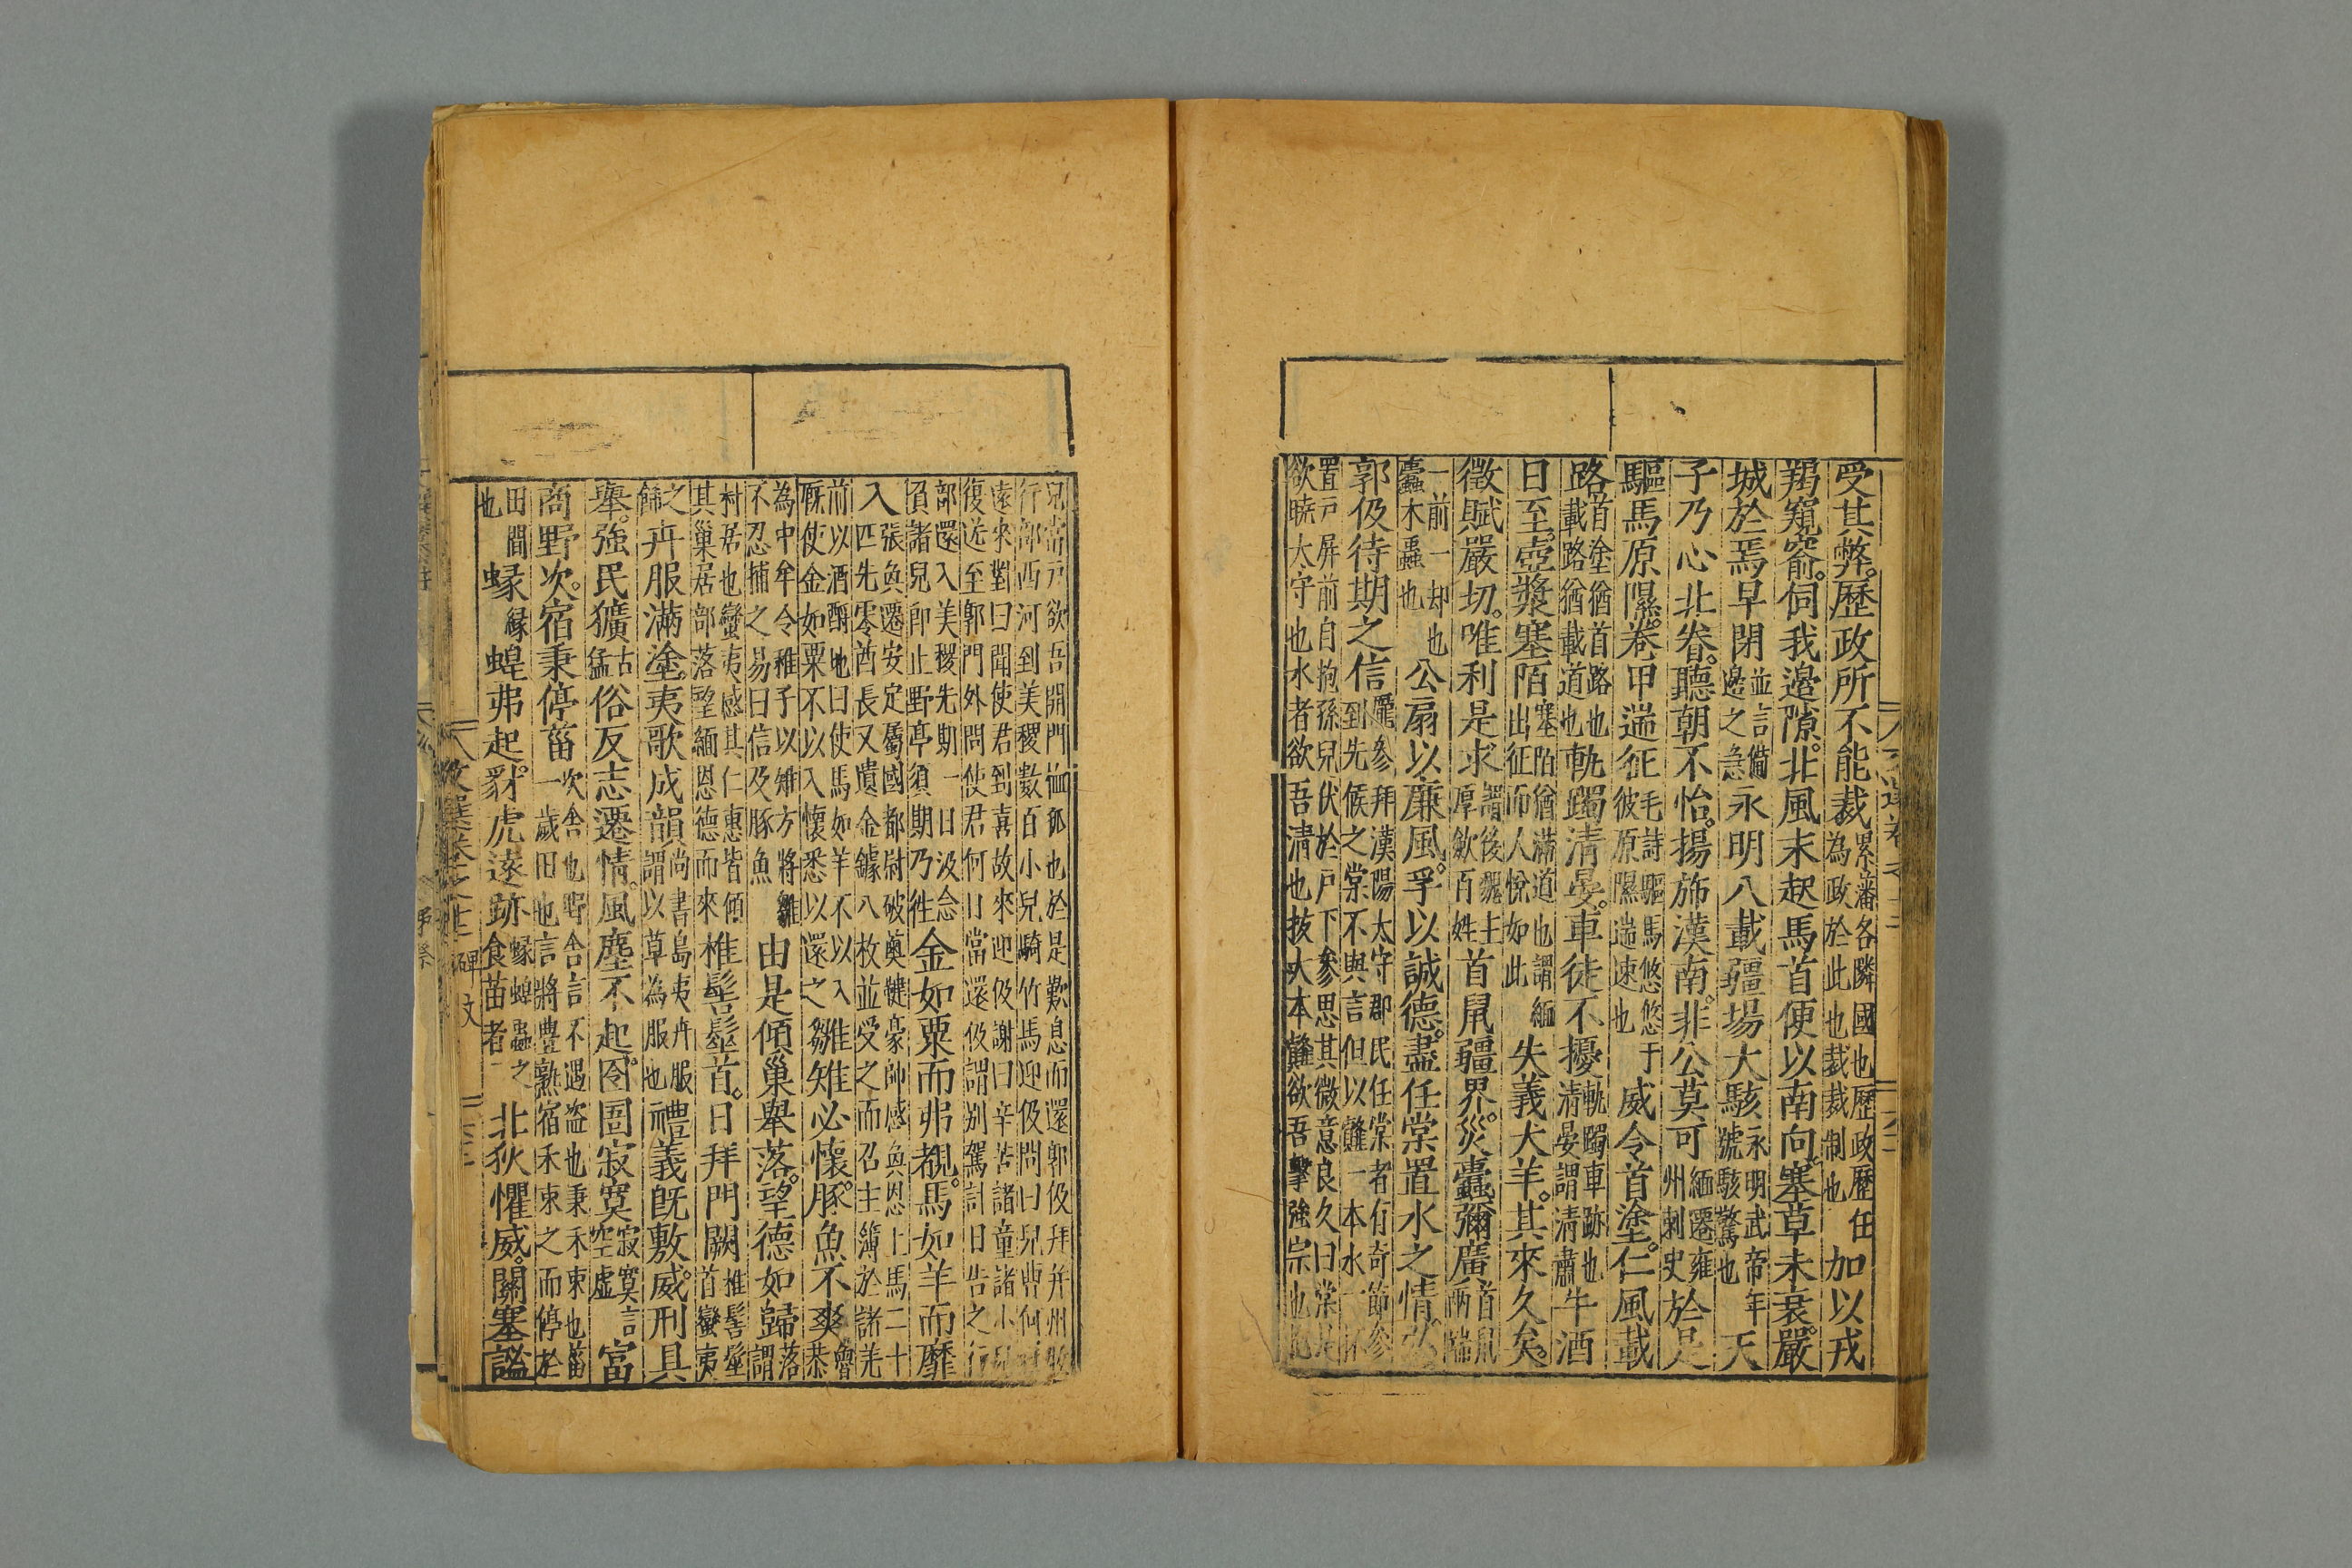 受其弊。歷政所不能裁累藩各隣國也歷政歷任為政於此也裁裁制也加以戎
羯窺窬。伺我邊隙。北風未起馬首便以南向。塞草未衰。嚴
城於焉早閉並言備邊之急永明八載疆場大駭永明武帝年號駭驚也天
子乃心北眷。聽朝不怡。揚斾漢南。非公莫可緬遷雍州刺史於是
驅馬原隰。卷甲遄征毛詩驅馬悠悠于彼原隰遄速也威令首塗。仁風載
路首塗猶首路也載路猶載道也軌躅清晏。車徒不擾軌躅車跡也清晏謂清肅牛酒
日至。壺漿塞陌塞陌猶滿道也謂緬出征而人悅如此失義犬羊。其來久矣。
徵賦嚴切。唯利是求謂後魏主厚歛百姓首鼠疆界。災蠹彌廣首鼠兩端
一前一却也蠹木蟲也公扇以廉風。孚以誠德。盡任棠置水之情。弘
郭伋待期之信龐參拜漢陽太守郡民任棠者有奇節參到先候之棠不與言但以䪥一本水一杯
置戸屏前自抱孫兒伏於戸下參思其微意良久曰棠是欲曉太守也水者欲吾清也拔大本䪥欲吾擊強宗也抱
兒當戸欲吾開門恤孤也於是歎息而還郭伋拜并州牧行部西河到美稷數百小兒騎竹馬迎伋問曰兒曹何
遠來對曰聞使君到喜故來迎伋謝曰辛苦諸童諸小兒復送至郭門外問使君何日當還伋謂別駕計日告之行
部還入美稷先期一日汲念負諸兒卽止野亭須期乃徃金如粟而弗覩。馬如羊而靡
入張奐遷安定屬國都尉破薁鞬豪帥感奐恩上馬二十匹先零酋長又遺金鐻八枚並受之而召主簿於諸羌
前以酒酹地曰使馬如羊不以入厩使金如粟不以入懷悉以還之雛雉必懷。豚魚不爽魯恭
為中牟令稚子以雉方將雛不忍捕之易曰信及豚魚由是傾巢舉落。望德如歸謂落
村居也蠻夷感其仁惠皆傾其巢居部落望緬恩德而來椎髻髽首。日拜門闕椎髻髽首蠻夷
之飾卉服滿塗。夷歌成韻尚書島夷卉服謂以草為服也禮義旣敷。威刑具
舉。強民獷古猛俗反志遷情。風塵不起。囹圄寂寞寂寞言空虛富
商野次。宿秉停菑次舍也野舍言不遇盜也秉禾束也菑一歲田也言將豊熟宿禾束之而停於
田間也蝝緣蝗弗起。豺虎遠跡蝝蝗蟲之食苗者北狄懼威。關塞謐
文選卷之十二 碑文